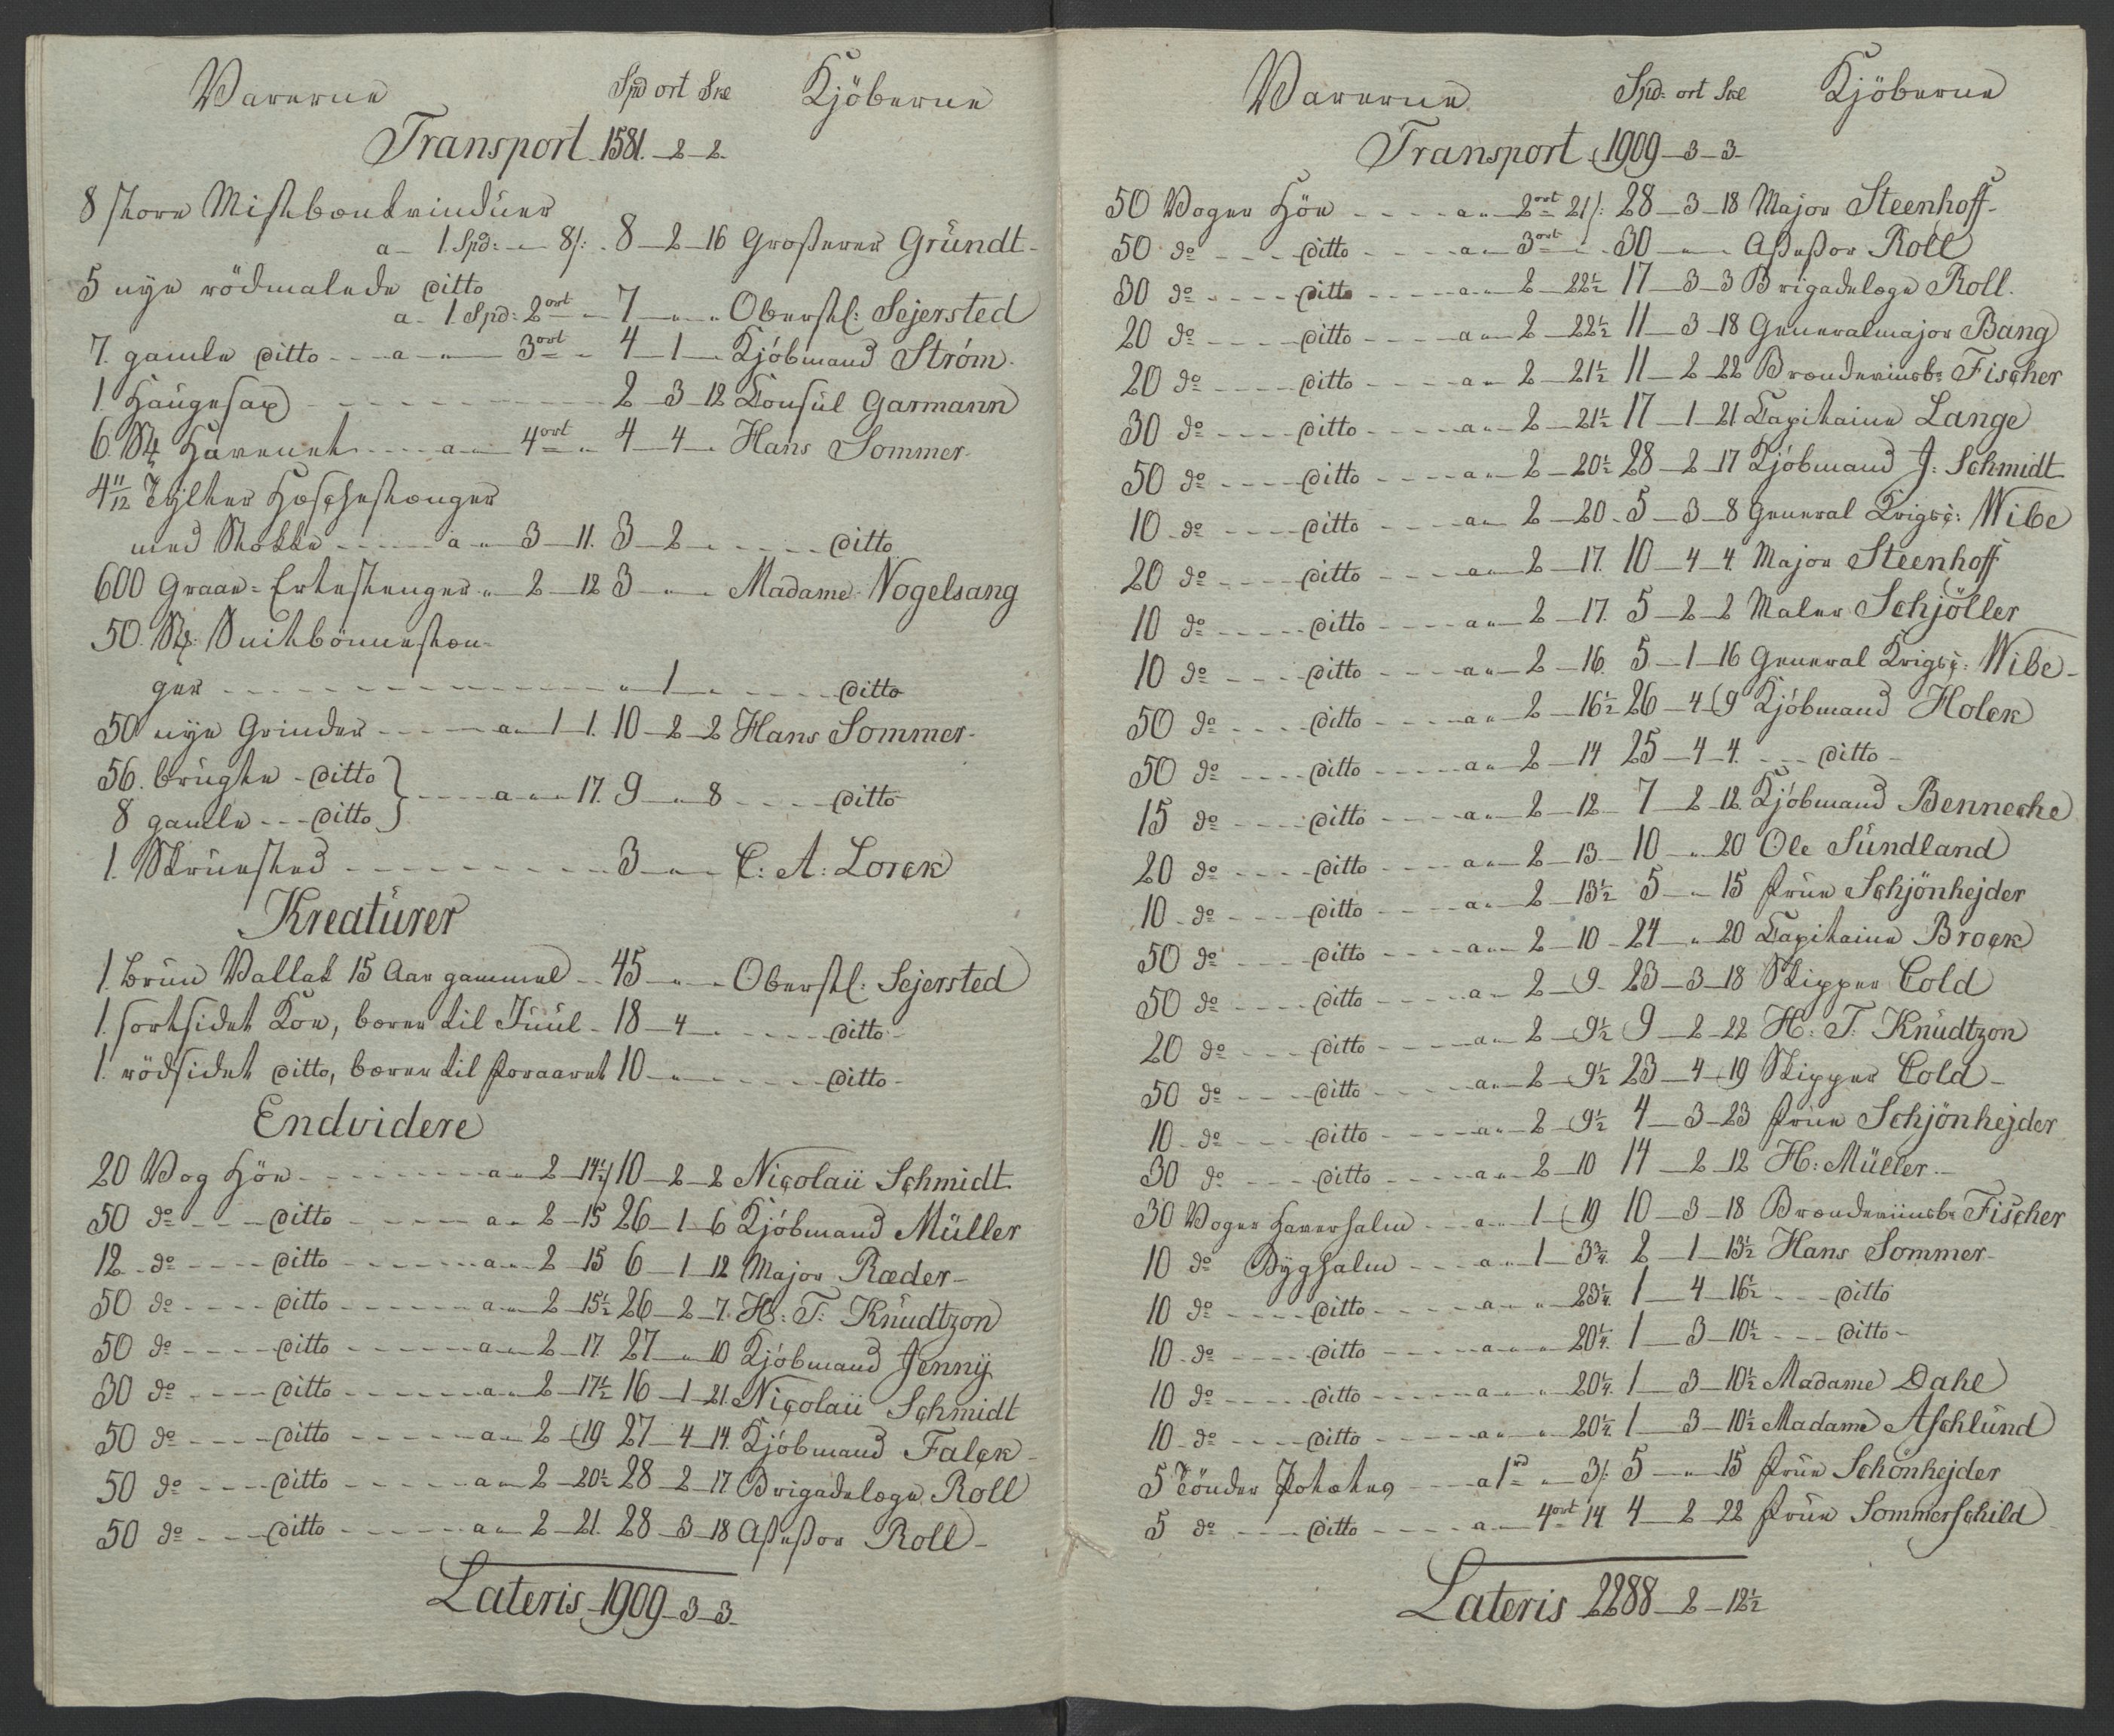 Varerne Spd ort Skl Kjöberne
Transport 1581. 2 2.
8 store Mistbænkvinduer
a 1. Spd: " 8/: 8 2 16 Grosserer Gründt
5 nye rödmalede ditto
a 1. Spd: 2 ort " 7 " " Oberstl: Sejersted
7. gamle ditto a " 3 ort " 4 1 " Kjöbmand Ström.
1. Haugesax 2 3 12 Konsul Garmann
6. St. Harvenet a " 4 ort " 4 4 " Hans Sommer
4 11/12 Tylter Hæschestænger
med Stokke a " 3 11. 3 2 " ditto
600 Graae-Ertestenger " 2 12 3 " " Madame Vogelsang
50. St: Snitbönnestæn-
ger " 1 " ditto
50 nye Grinder a 1 1. 10 2 2 Hans Sommer
56. brugte ditto
8 gamle ditto } a " " 17. 9 " 8 ditto
1. Skruested 3 " " C: A: Lorck
Kreatürer
1. brun Vallak 15 Aar gammel 45 " " Oberstl: Sejersted
1. sortsidet Koe, bærer til Juul 18 4 " ditto
1. rödsidet ditto, bærer til Foraaret 10 " " ditto
Endvidere
20 Vog Höe a " 2 14½ 10 2 2 Nicolaii Schmidt
50 do ditto a " 2 15 26 1 6 Kjöbmand Müller
12 do ditto a " 2 15 6 1 12 Major Ræder
50 do ditto a " 2 15½ 26 2 7. H: T: Knüdtzon
50 do ditto a " 2 17. 27 " 10 Kjöbmand Jenny
30 do ditto a " 2 17½ 16 1 21. Nicolaii Schmidt
50 do ditto a " 2 19 27 4 14. Kjöbmand Falck
50 do ditto a " 2 20½ 28 2 17 Brigadelæge Roll
50 do ditto a " 2 21. 28 3 18 Assessor Roll
Lateris 1909 3 3
Varerne Spd: ort Skl Kjöberne
Transport 1909 3 3
50 Voger Höe a " 2 ort 21/: 28 3 18 Major Steenhoff
50 do ditto a " 3 ort " 30 " " Assessor Roll
30 do ditto a " 2 22½ 17 3 3 Brigadelæge Roll.
20 do ditto a " 2 22½ 11 3 18 Generalmajor Bang
20 do ditto a " 2 21½ 11 2 22 Brænderiinsb: Fischer
30 do ditto a " 2 21½ 17 1 21 Kapitaine Lange
50 do ditto a " 2 20½ 28 2 17 Kjöbmand J: Schmidt
10 do ditto a " 2 20 5 3 8 General Krigsç: Wibe
20 do ditto a " 2 17. 10 4 4. Major Steenhoff
10 do ditto a " 2 17. 5 2 2 Maler Schjöller
10 do ditto a " 2 16. 5 1 16 General Krigsç: Wibe
50 do ditto a " 2 16½ 26 4 9 Kjöbmand Holck
50 do ditto a " 2 14 25 4 4. ditto
15 do ditto a " 2 12 7 2 12. Kjöbmand Benneche
20 do ditto a " 2 13 10 " 20 Ole Sündland
10 do ditto a " 2 13½ 5 " 15 Frue Schjönhejder
50 do ditto a " 2 10 24 " 20 Kapitaine Brock
50 do ditto a " 2 9 23 3 18 Skipper Cold
20 do ditto a " 2 9½ 9 2 22 H: T: Knüdtzon
50 do ditto a " 2 9½ 23 4 19 Skipper Cold
10 do ditto a " 2 9½ 4 3 23 Frue Schjönhejder
30 do ditto a " 2 10 14 2 12 H: Müller
30 Voger Haverhalm a " 1 19 10 3 18 Brænderiinsb: Fischer
10 do Byghalm a " 1 3¾ 2 1 13½ Hans Sommer
10 do ditto a " " 23¼. 1 4 16½ ditto
10 do ditto a " " 20¼. 1 3 10½ ditto
10 do ditto a " " 20¼. 1 3 10½ Madame Dahl
10 do ditto a " " 20¼. 1 3 10½ Madame Aschlünd
5 Tönder Potetes a 1 " 3/: 5 " 15 Frue Schönhejder
5 do ditto a " 4 ort 14. 4 2 22 Frue Sommerschild
Lateris 2288 2 12½